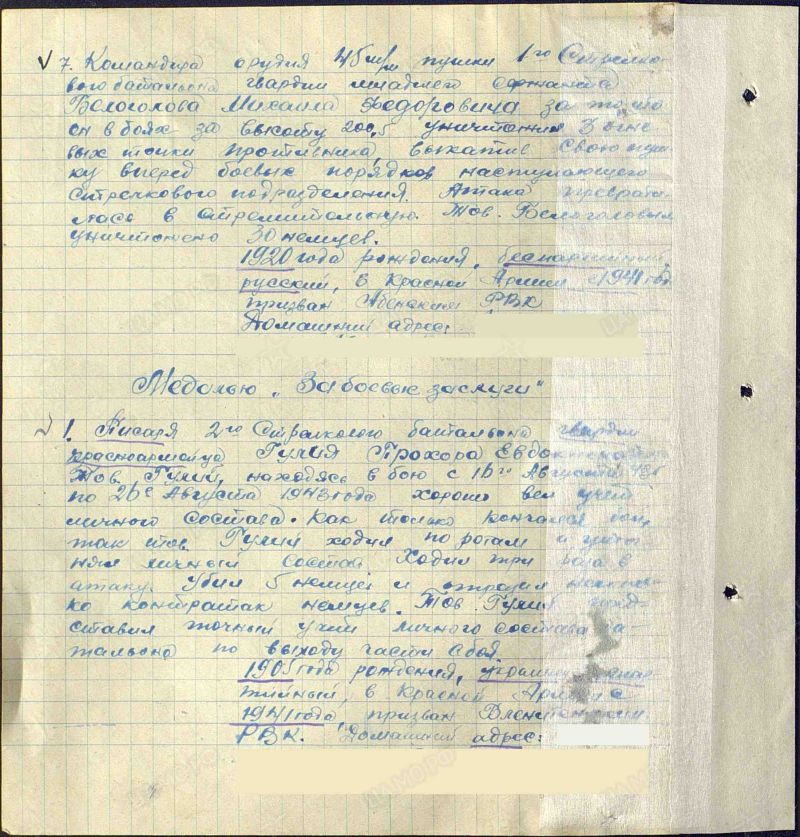 7. Командира орудия 45 м/м пушки 1го Стрелко-
вого батальона гвардии младшего сержанта
Белоголова Михаила Федоровича за то, что
он в боях за высоту 200,5 уничтожил 3 огне
вых точки противника, выкатив свою пуш-
ку вперед боевых порядков наступающего
стрелкового подразделения. Атака преврати-
лась в стремительную. Тов. Белоголовым
уничтожено 30 немцев.
1920 года рождения, беспартийный,
русский, в Красной Армии с 1941 года
призван РВК
Домашний адрес:
Медалью "За боевые заслуги"
1. Писаря 2го Стрелкового батальона гвардии
красноармейца Гулия Прохора
Тов. Гулий, находясь в бою с 16го Августа
по 26е Августа 1943 года хорошо вел учет
личного состава. Как только кончался бой,
так тов. Гулий ходил по ротам и уточ-
нял личный состав. Ходил три раза в
атаку. Убил 5 немцев и отразил несколь-
ко контратак немцев. Тов. Гулий пред-
ставил точный учет личного состава ба-
тальона по выходу части с боя
1905 года рождения,
тийный, в Красной Армии с
1941 года, призван
РВК. Домашний адрес: